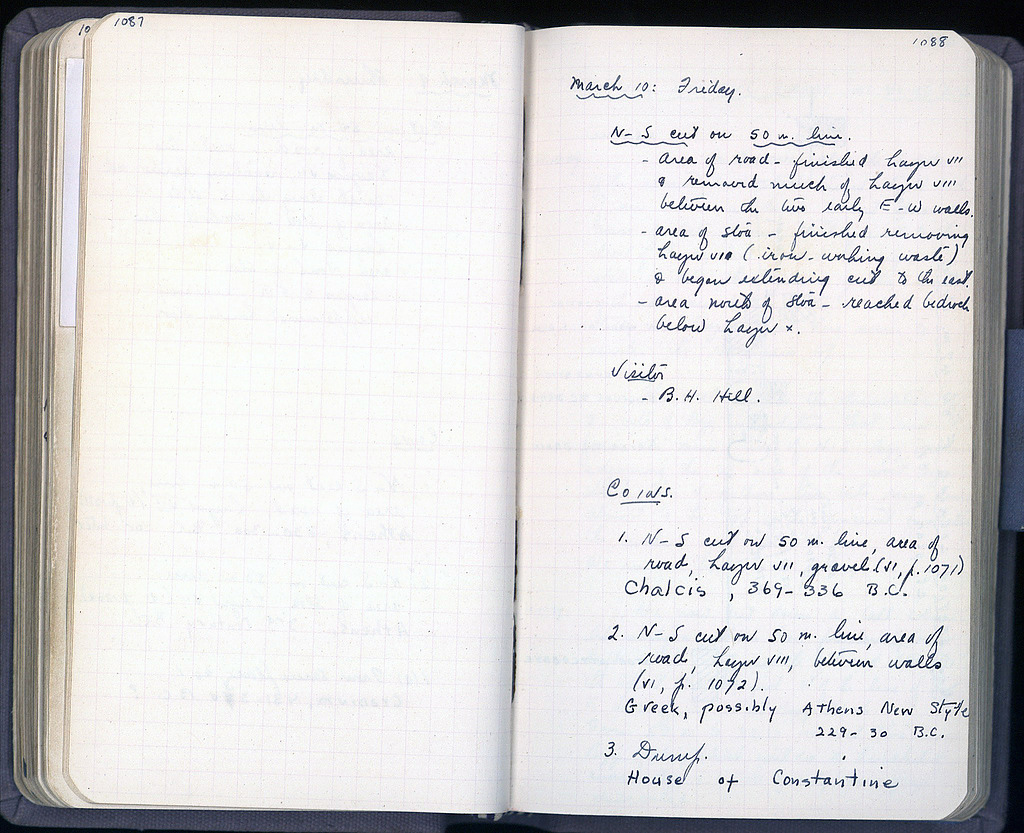 10
1087
1088
March 10: Friday.
N-S cut on 50 m. line.
- area of road - finished Layer VII
& removed much of Layer VIII
between the two early E-W walls.
- area of stoa - finished removing
Layer VIII (iron-working waste)
& began extending cut to the east.
- area north of stoa - reached bedrock
below Layer X.
Visitor
- B.H. Hill.
Coins.
1. N-S cut on 50 m. line, area of
road, Layer VII, gravel (VI, p. 1071)
Chalcis, 369-336 B.C.
2. N-S cut on 50 m. line, area of
road, Layer VIII, between walls
(VI, p. 1072).
Greek, possibly Athens New Style
229-30 B.C.
3. Dump.
House of Constantine